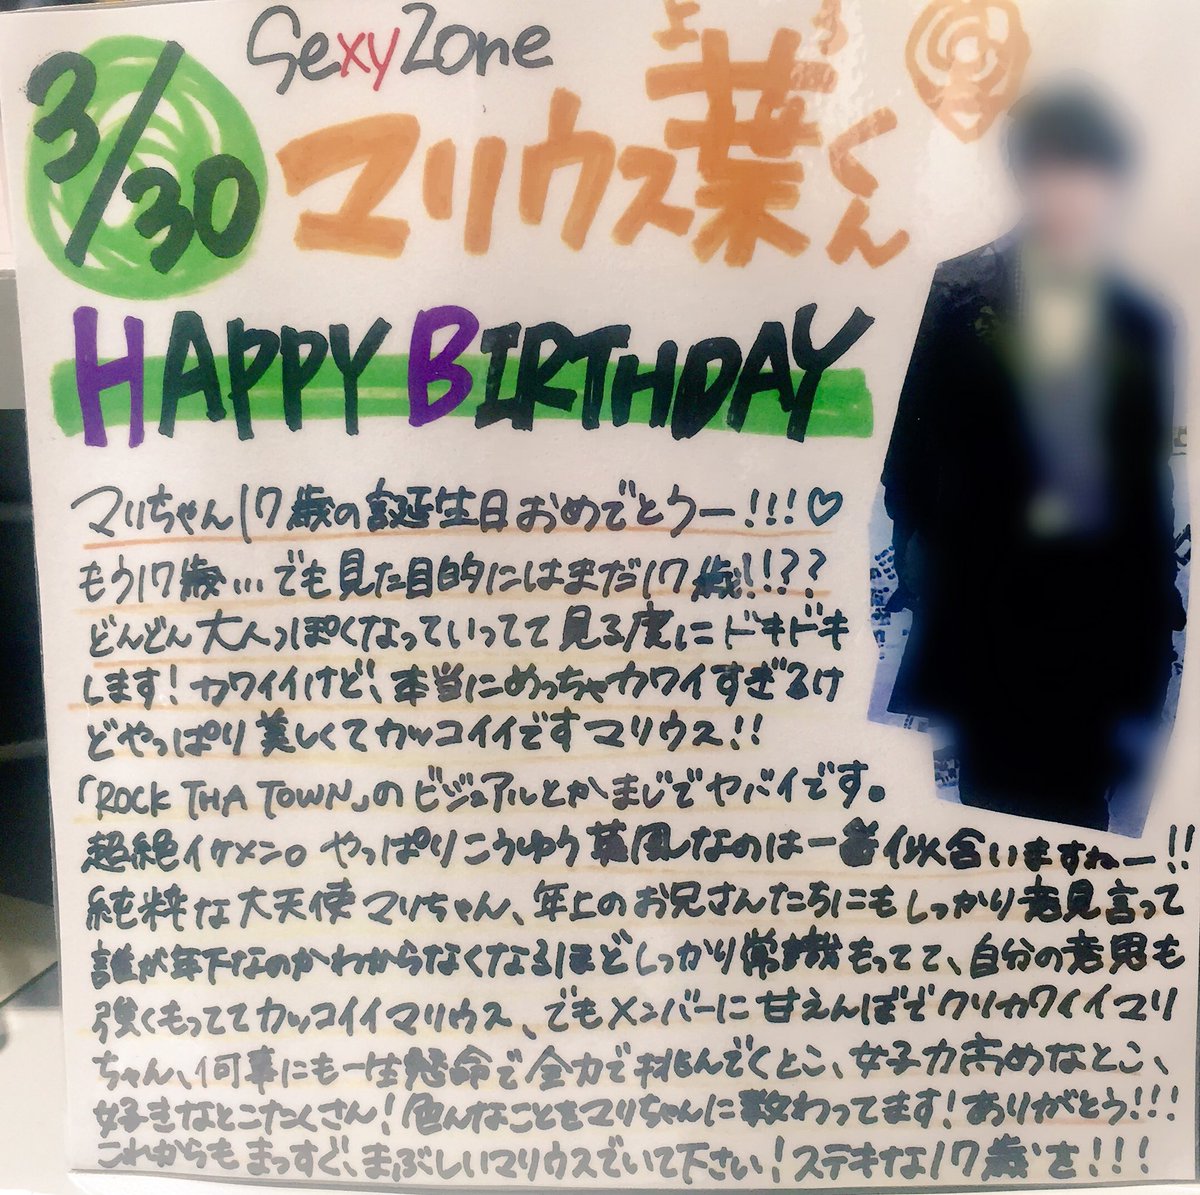 Sexy Zone
3/30
マリウス葉くん
HAPPY BIRTHDAY
マリちゃん17歳の誕生日おめでとうー!!!♡
もう17歳…でも見た目的にはまだ17歳!!??
どんどん大人っぽくなっていってて見る度にドキドキ
します!カワイイけど、本当にめっちゃカワイすぎるけ
どやっぱり美しくてカッコイイですマリウス!!
「ROCK THA TOWN」のビジュアルとかまじでヤバイです。
超絶イケメン。やっぱりこうゆう英国風なのは一番似合いますねー!!
純粋な大天使マリちゃん、年上のお兄さんたちにもしっかり意見言って
誰が年下なのかわからなくなるほどしっかり常識もってて、自分の意思も
強くもっててカッコイイマリウス、でもメンバーに甘えんぼでクソカワイイマリ
ちゃん、何事にも一生懸命で全力で挑んでくとこ、女子力高めなとこ、
好きなとこたくさん!色んなことをマリちゃんに教わってます!ありがとう!!!
これからもまっすぐ、まぶしいマリウスでいて下さい!ステキな17歳を!!!